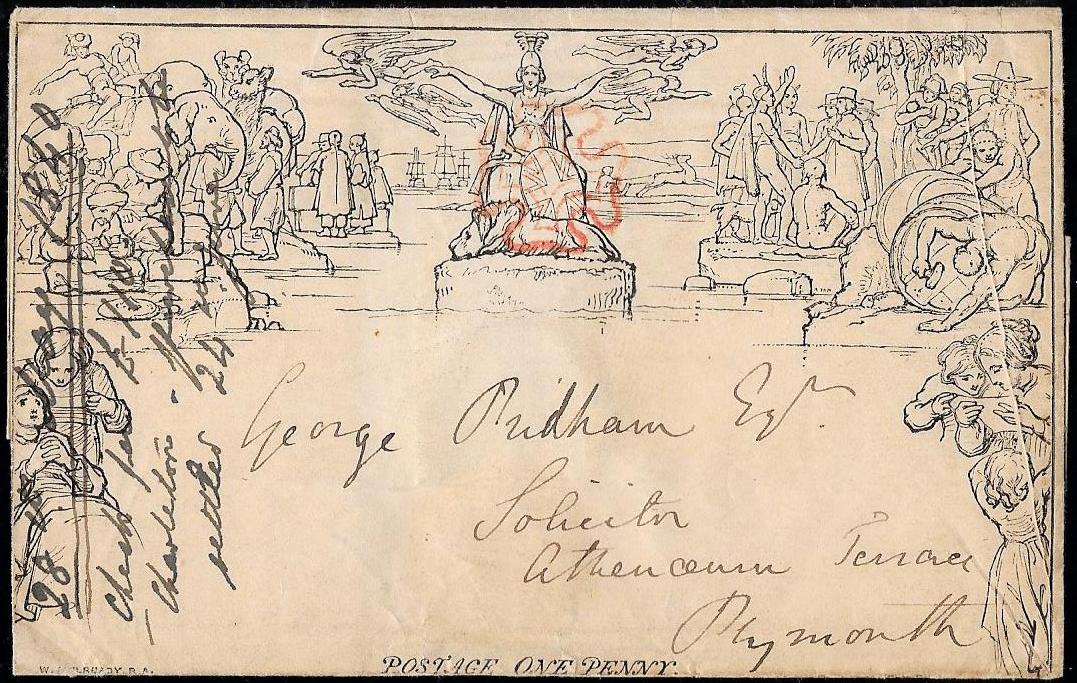 George Pridham Esqr
Solicitor
Athenæum Terrace
Plymouth
28 May 1840
Check for £
Charleton -
settled 24
W. MULREADY. R.A.
POSTAGE ONE PENNY.